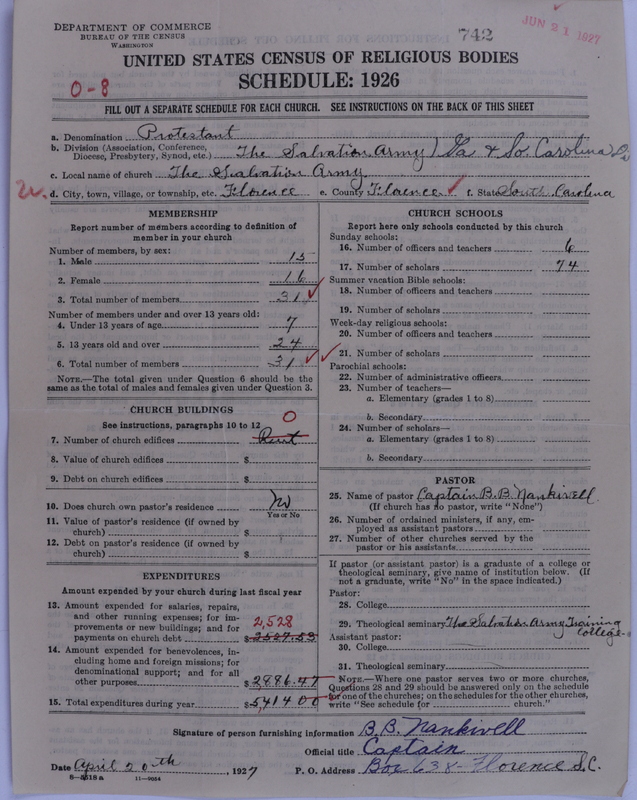 DEPARTMENT OF COMMERCE
BUREAU OF THE CENSUS
WASHINGTON
742
JUN 21 1927
UNITED STATES CENSUS OF RELIGIOUS BODIES
SCHEDULE: 1926
0-8
FILL OUT A SEPARATE SCHEDULE FOR EACH CHURCH. SEE INSTRUCTIONS ON THE BACK OF THIS SHEET
a. Denomination Protestant
b. Division (Association, Conference, Diocese, Presbytery, Synod, etc.) The Salvation Army / Ga & So. Carolina
c. Local name of church The Salvation Army
d. City, town, village, or township, etc. Florence e. County Florence f. State South Carolina
MEMBERSHIP
Report number of members according to definition of
member in your church
Number of members, by sex:
1. Male 15
2. Female 16
3. Total number of members 31
Number of members under and over 13 years old:
4. Under 13 years of age 7
5. 13 years old and over 24
6. Total number of members 31
NOTE.—The total given under Question 6 should be the
same as the total of males and females given under Question 3.
CHURCH BUILDINGS
See instructions, paragraphs 10 to 12
0
7. Number of church edifices Rent
8. Value of church edifices $
9. Debt on church edifices $
10. Does church own pastor's residence No
Yes or No
11. Value of pastor's residence (if owned by
church) $
12. Debt on pastor's residence (if owned by
church) $
EXPENDITURES
Amount expended by your church during last fiscal year
13. Amount expended for salaries, repairs,
and other running expenses; for im-
provements or new buildings; and for 2,528
payments on church debt $2527.53
14. Amount expended for benevolences, in-
cluding home and foreign missions; for
denominational support; and for all
other purposes $2,886.47
15. Total expenditures during year $5414 00
CHURCH SCHOOLS
Report here only schools conducted by this church
Sunday schools:
16. Number of officers and teachers 6
17. Number of scholars 74
Summer vacation Bible schools:
18. Number of officers and teachers
19. Number of scholars
Week-day religious schools:
20. Number of officers and teachers
21. Number of scholars
Parochial schools:
22. Number of administrative officers
23. Number of teachers—
a. Elementary (grades 1 to 8)
b. Secondary
24. Number of scholars—
a. Elementary (grades 1 to 8)
b. Secondary
PASTOR
25. Name of pastor Captain B. B. Nankivell
(If church has no pastor, write "None")
26. Number of ordained ministers, if any, em-
ployed as assistant pastors
27. Number of other churches served by the
pastor or his assistants
If pastor (or assistant pastor) is a graduate of a college or
theological seminary, give name of institution below. (If
not a graduate, write "No" in the space indicated.)
Pastor:
28. College
29. Theological seminary The Salvation Army Training
College
Assistant pastor:
30. College
31. Theological seminary
NOTE.—Where one pastor serves two or more churches,
Questions 28 and 29 should be answered only on the schedule
for one of the churches; on the schedules for the other churches,
write "See schedule for church."
Signature of person furnishing information B. B. Nankivell
Official title Captain
Date April 20th, 1927 P. O. Address Box 638 - Florence S.C.
8—3518a 11—9024